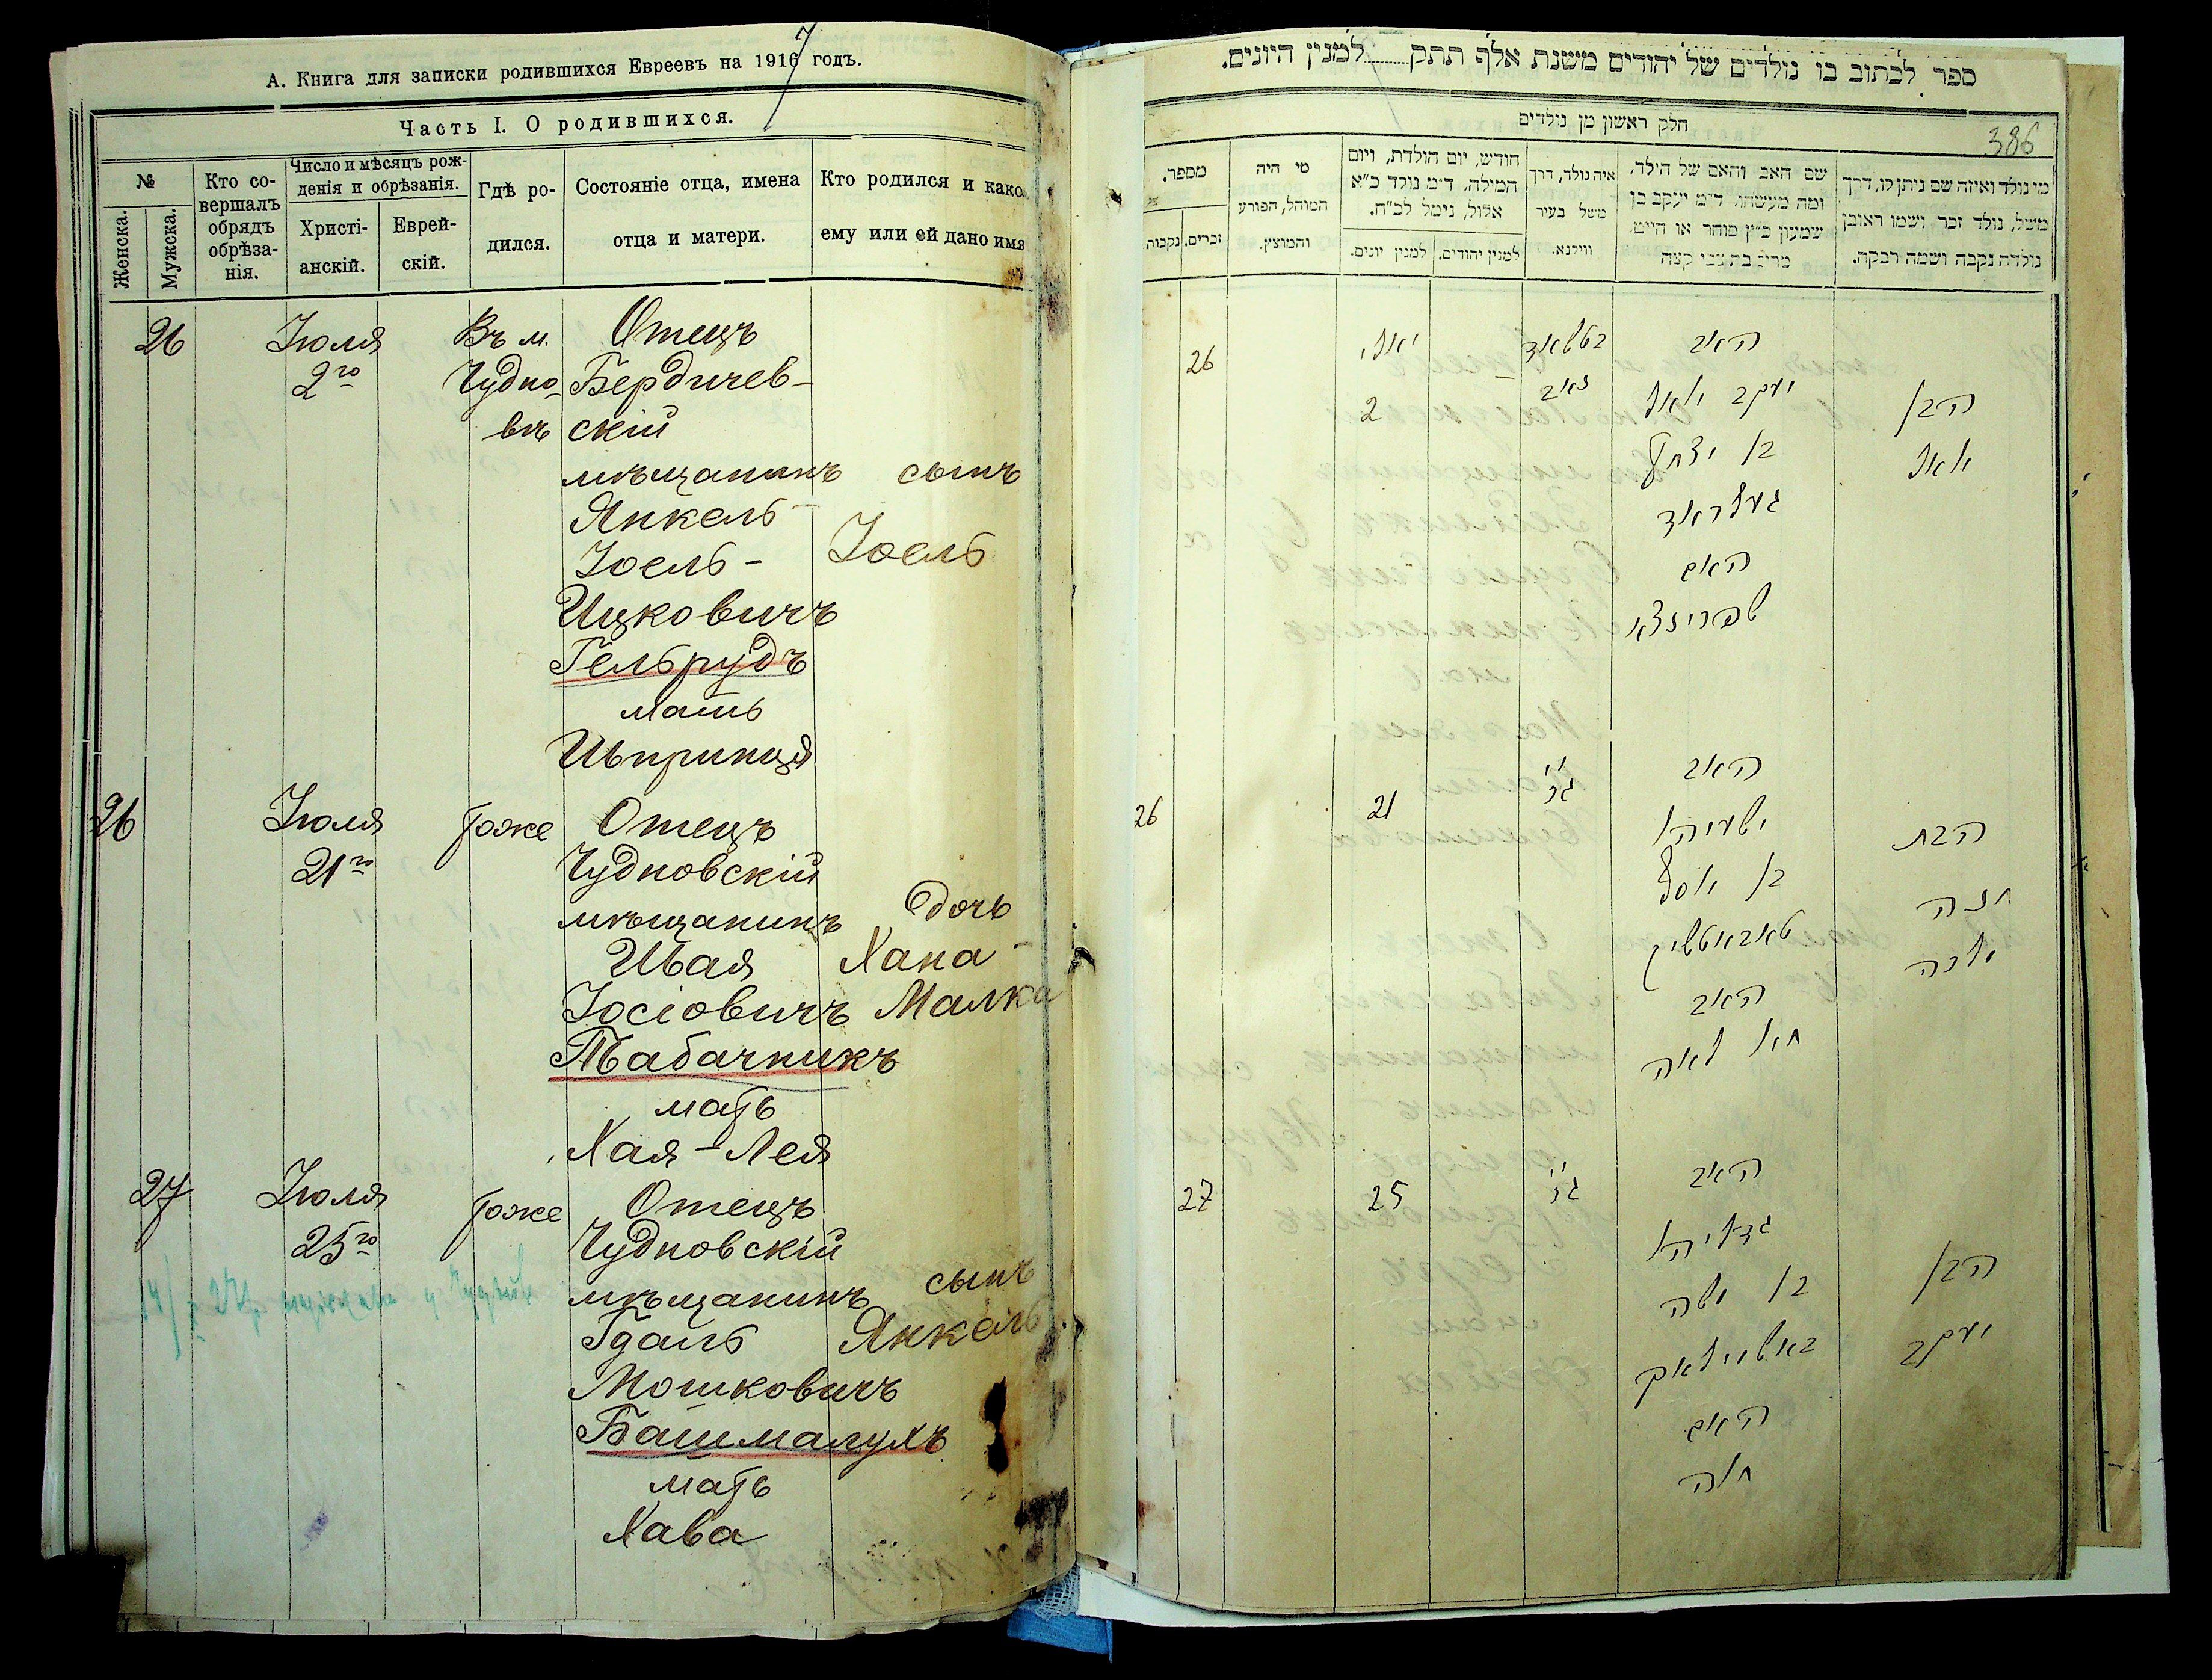 А. Книга для записки родившихся Евреевъ на 1916 годъ.
7
Часть I. О родившихся.
№
Женска.
Мужска.
Кто со-
вершалъ
обрядъ
обрѣза-
нія.
Число и мѣсяцъ рож-
денія и обрѣзанія.
Христі-
анскій.
Еврей-
скій.
Гдѣ ро-
дился.
Состояніе отца, имена
отца и матери.
Кто родился и како
ему или ей дано имя
26 Іюля Въ м. Отецъ
2го Чудно Бердичев-
вѣ скій
мѣщанинъ сынъ
Янкель-
Іоель- Іоель
Ицковичъ
Гельрудъ
мать
Шпринця
26 Іюля тоже Отецъ
21го Чудновскій
мѣщанинъ дочь
Шая Хана-
Іосіовичъ Малка
Табачникъ
мать
Хая-Лея
27 Іюля тоже Отецъ
25го Чудновскій
мѣщанинъ сынъ
Гдаль Янкель
Мошковичъ
Башмалухъ
мать
Хава
ספר לכתוב בו נולדים של יהודים משנת אלף תתק למנין היונים.
חלק ראשון מן נולדים
386
מי נולד ואיזה שם ניתן לו, דרך
משל, נולד זכר ושמו ראובן
נולדה נקבה ושמה רבקה.
שם האב והאם של הילד,
ומה מעשהו, ד״מ יעקב בן
שמעון כ״ץ סוחר או הייט
מרים בת צבי קצה
איה נולד, דרך
משל בעיר
ווילנא.
חודש, יום הולדת, ויום
המילה, ד״מ נולד כ״א
אלול, נימל לכ״ח.
למנין יהודים.
למנין יונים.
מי היה
המוהל, הפורע
והמוצץ.
מספר.
זכרים.
נקבות
26 יולי האב
2 יעקב יואל הבן
בן יצחק יואל
געלרוד
האם
שפרינצא
26 21 האב
ישעיהו הבת
בן יוסף חנה
טאבאטשניק
האב
חיא לאה
27 25 האב
גדליהו
בן משה הבן
יעקב
האם
חוה